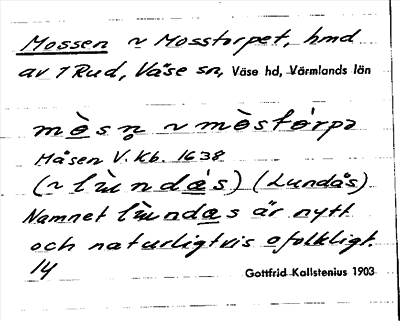 Mossen ~ Mosstorpet, hmd
av 1 Rud, Väse sn, Väse hd, Värmlands län
mòsn̥ ~ mòstórpə
Måsen V. Kb. 1638
(~ lùndás) (Lundås)
Namnet lùndas är nytt
och naturligtvis ofolkligt.
14 Gottfrid Kallstenius 1903